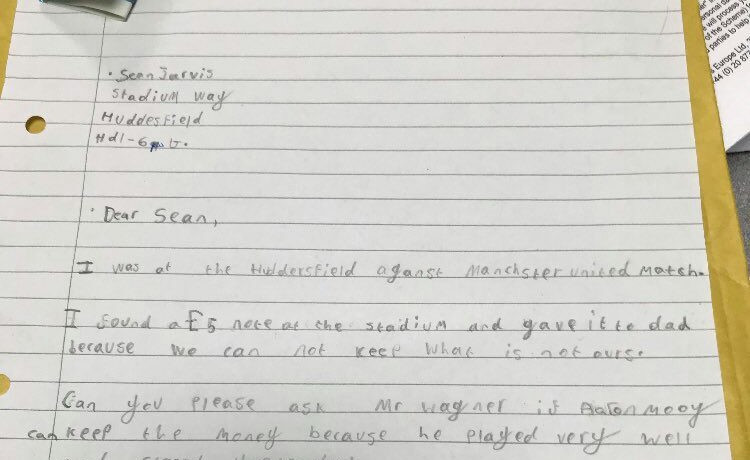 Sean Jarvis
Stadium Way
Huddesfield
Hd1-6
Dear Sean,
I was at the Huddersfield aganst Manchster united Match.
I found a £5 note at the stadium and gave it to dad
because we can not keep what is not ours.
Can you please ask Mr Wagner if Aaron Mooy
can keep the money because he played very well
ersonal da
will process y
of the Scheme)
parties to help
Europe Ltd,
44 (0) 20 87